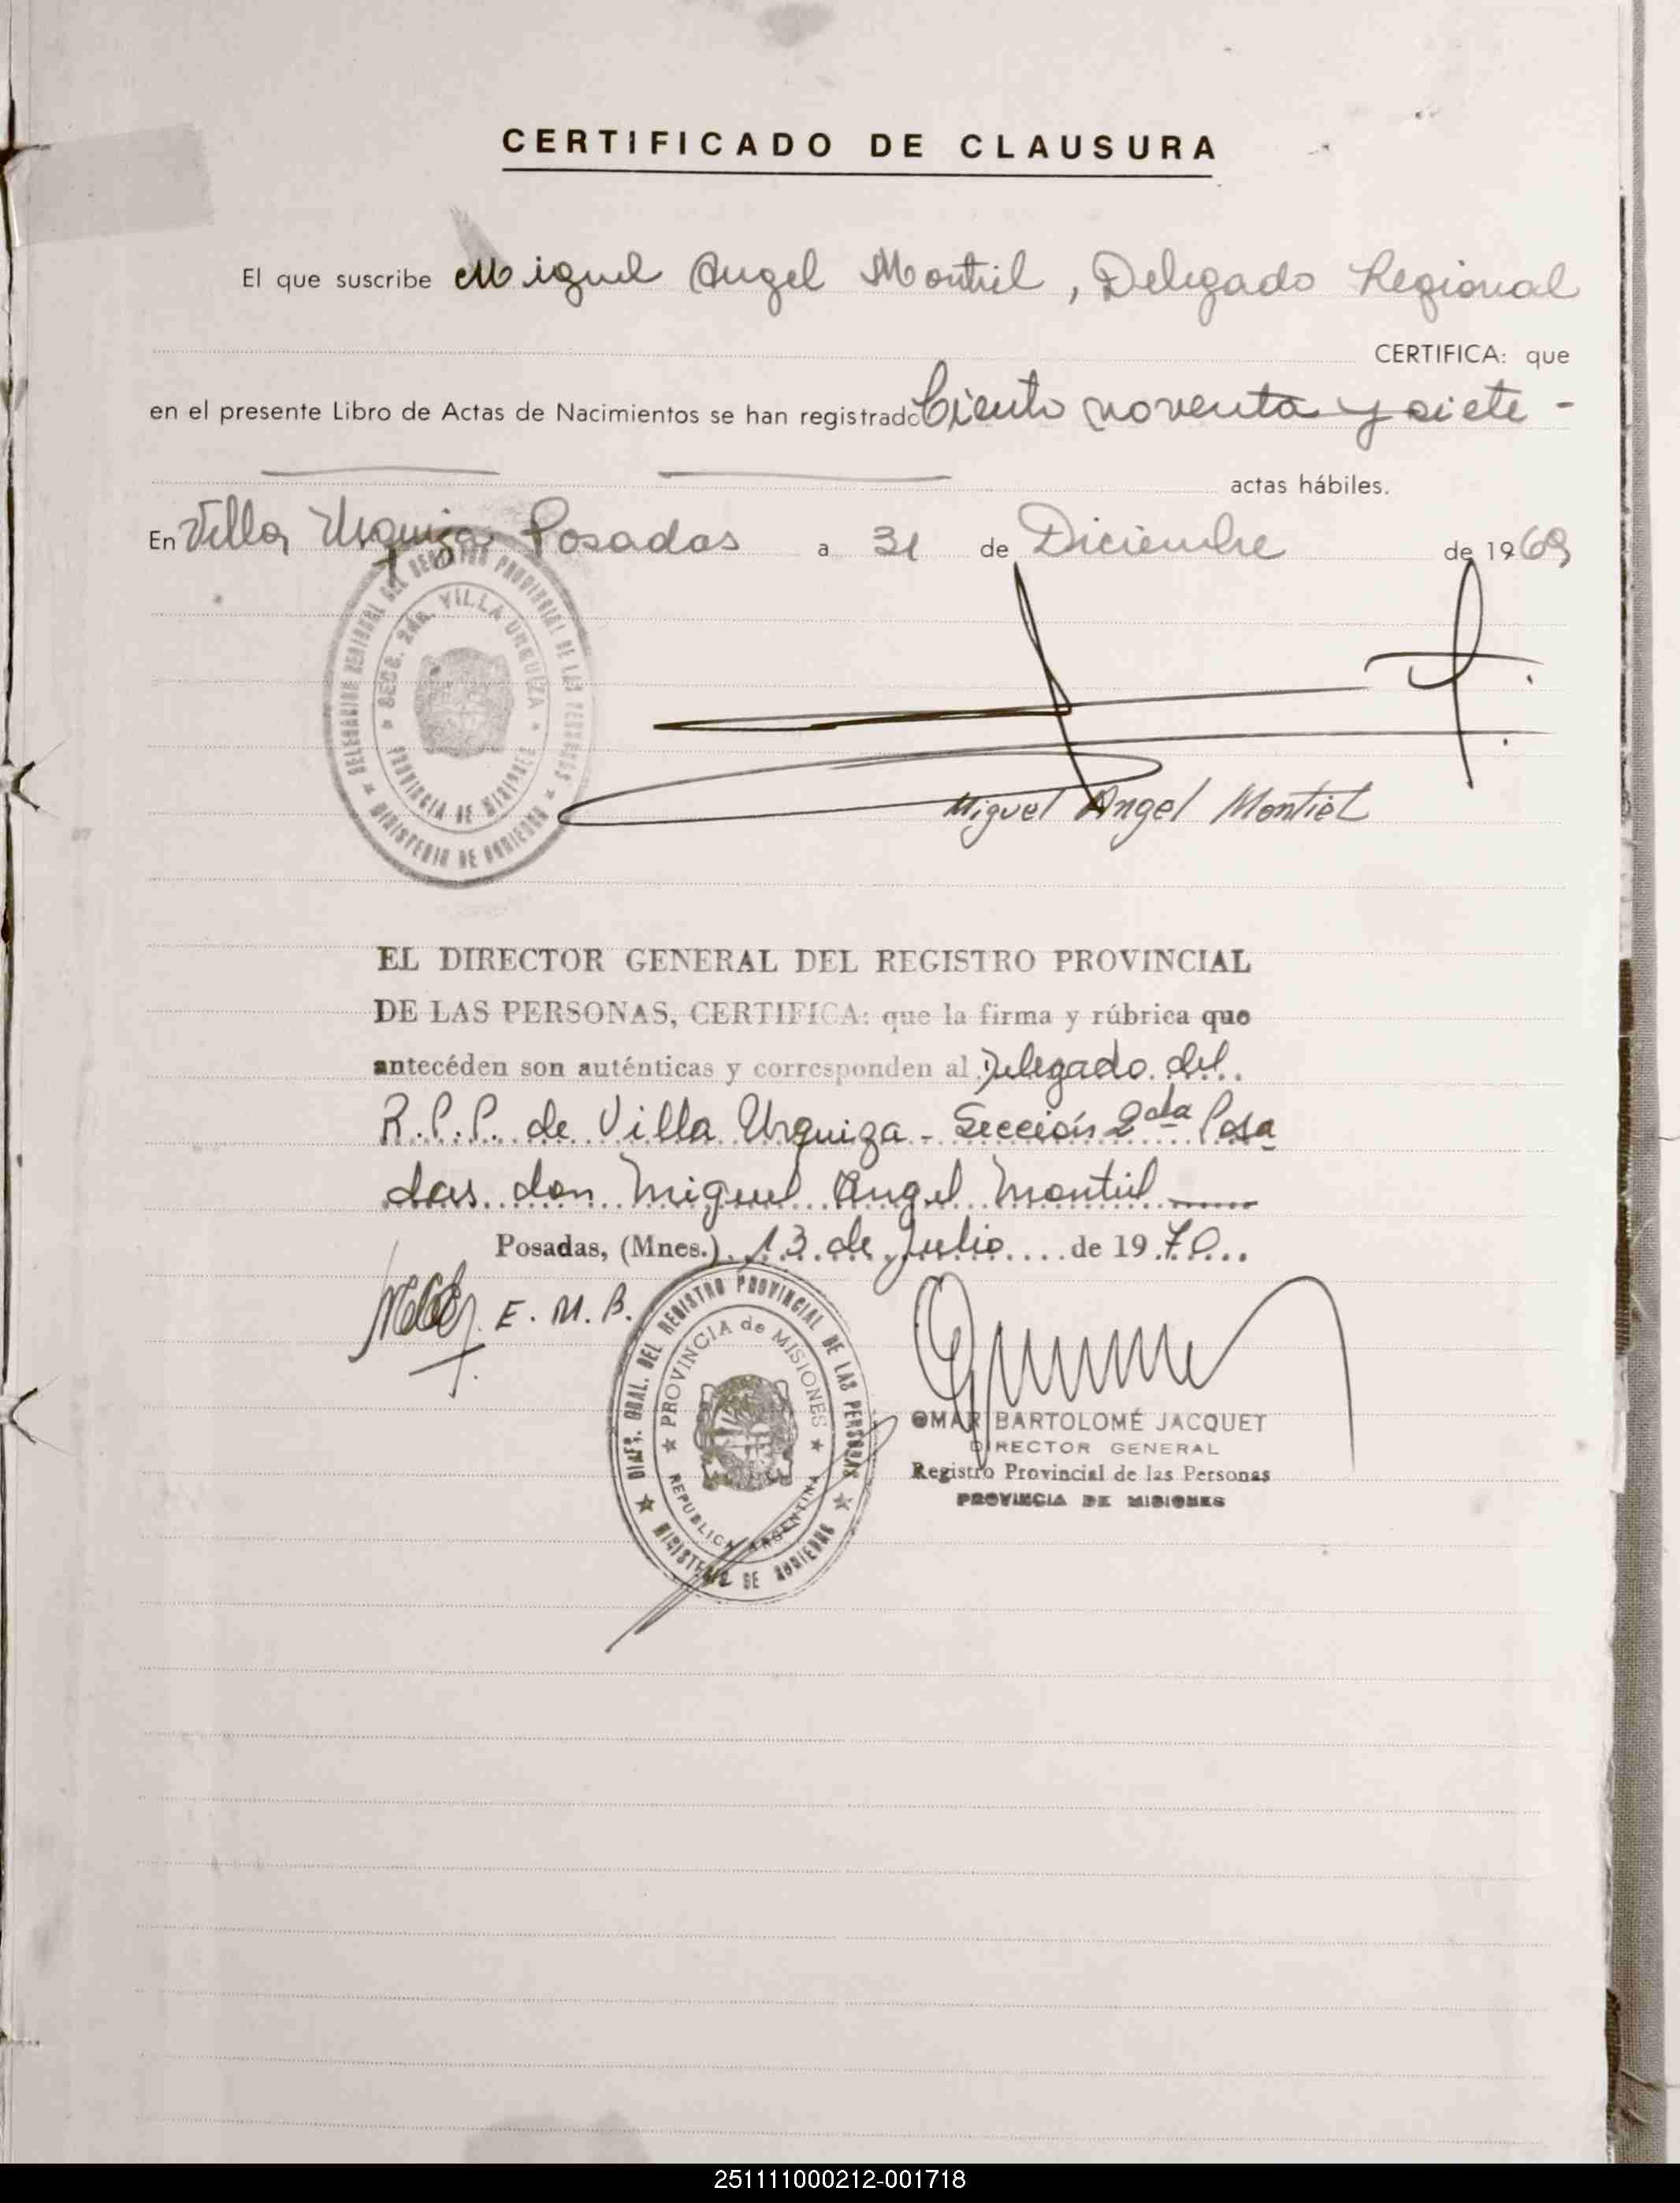 CERTIFICADO DE CLAUSURA
El que suscribe Miguel Angel Montiel, Delegado Regional
CERTIFICA: que
en el presente Libro de Actas de Nacimientos se han registrado Ciento noventa y siete -
actas hábiles.
En Villa Urquiza Posadas a 31 de Diciembre de 1969
DELEGACION REGIONAL DEL REGISTRO PROVINCIAL DE LAS PERSONAS
SECC. 2da. VILLA URQUIZA
PROVINCIA DE MISIONES
MINISTERIO DE GOBIERNO
Miguel Angel Montiel
EL DIRECTOR GENERAL DEL REGISTRO PROVINCIAL
DE LAS PERSONAS, CERTIFICA: que la firma y rúbrica que
antecéden son auténticas y corresponden al Delegado del
R.P.P. de Villa Urquiza - Sección 2da Posa
das don Miguel Angel Montiel
Posadas, (Mnes.) 13 de Julio de 1970
E. M. B.
GRAL. DEL REGISTRO PROVINCIAL DE LAS PERSONAS
PROVINCIA de MISIONES
REPUBLICA ARGENTINA
MINISTERIO DE GOBIERNO
OMAR BARTOLOMÉ JACQUET
DIRECTOR GENERAL
Registro Provincial de las Personas
PROVINCIA DE MISIONES
251111000212-001718